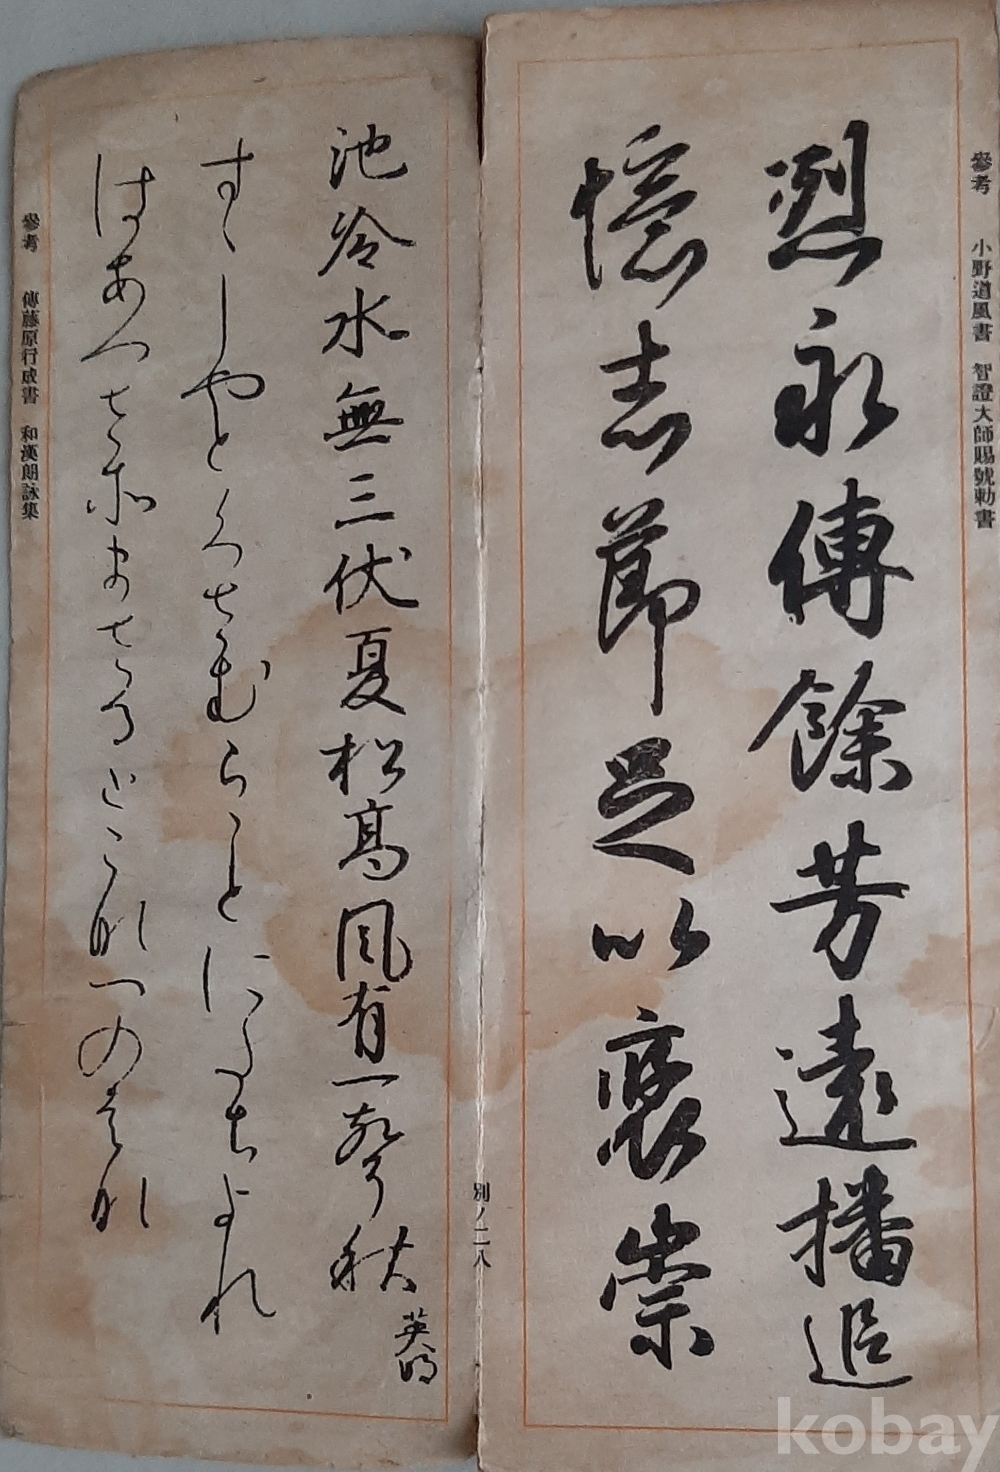 參考　小野道風書　智證大師賜號勅書
烈永傳餘芳遠播追
憶志節足以褒崇
別ノ二八
池冷水無三伏夏松高風有一聲秋
英明
すゝしやとくさむらことにたちよれ
はあつさそまさるとこなつのはな
參考　傳藤原行成書　和漢朗詠集
kobay